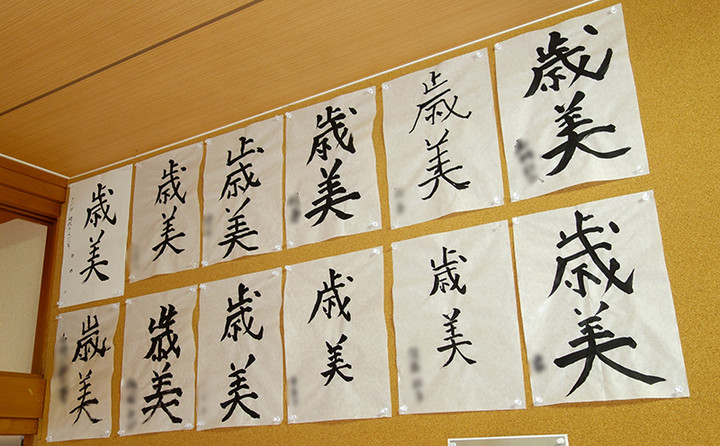 歳美
歳美
歳美
歳美
歳美
歳美
歳美
歳美
歳美
歳美
歳美
歳美